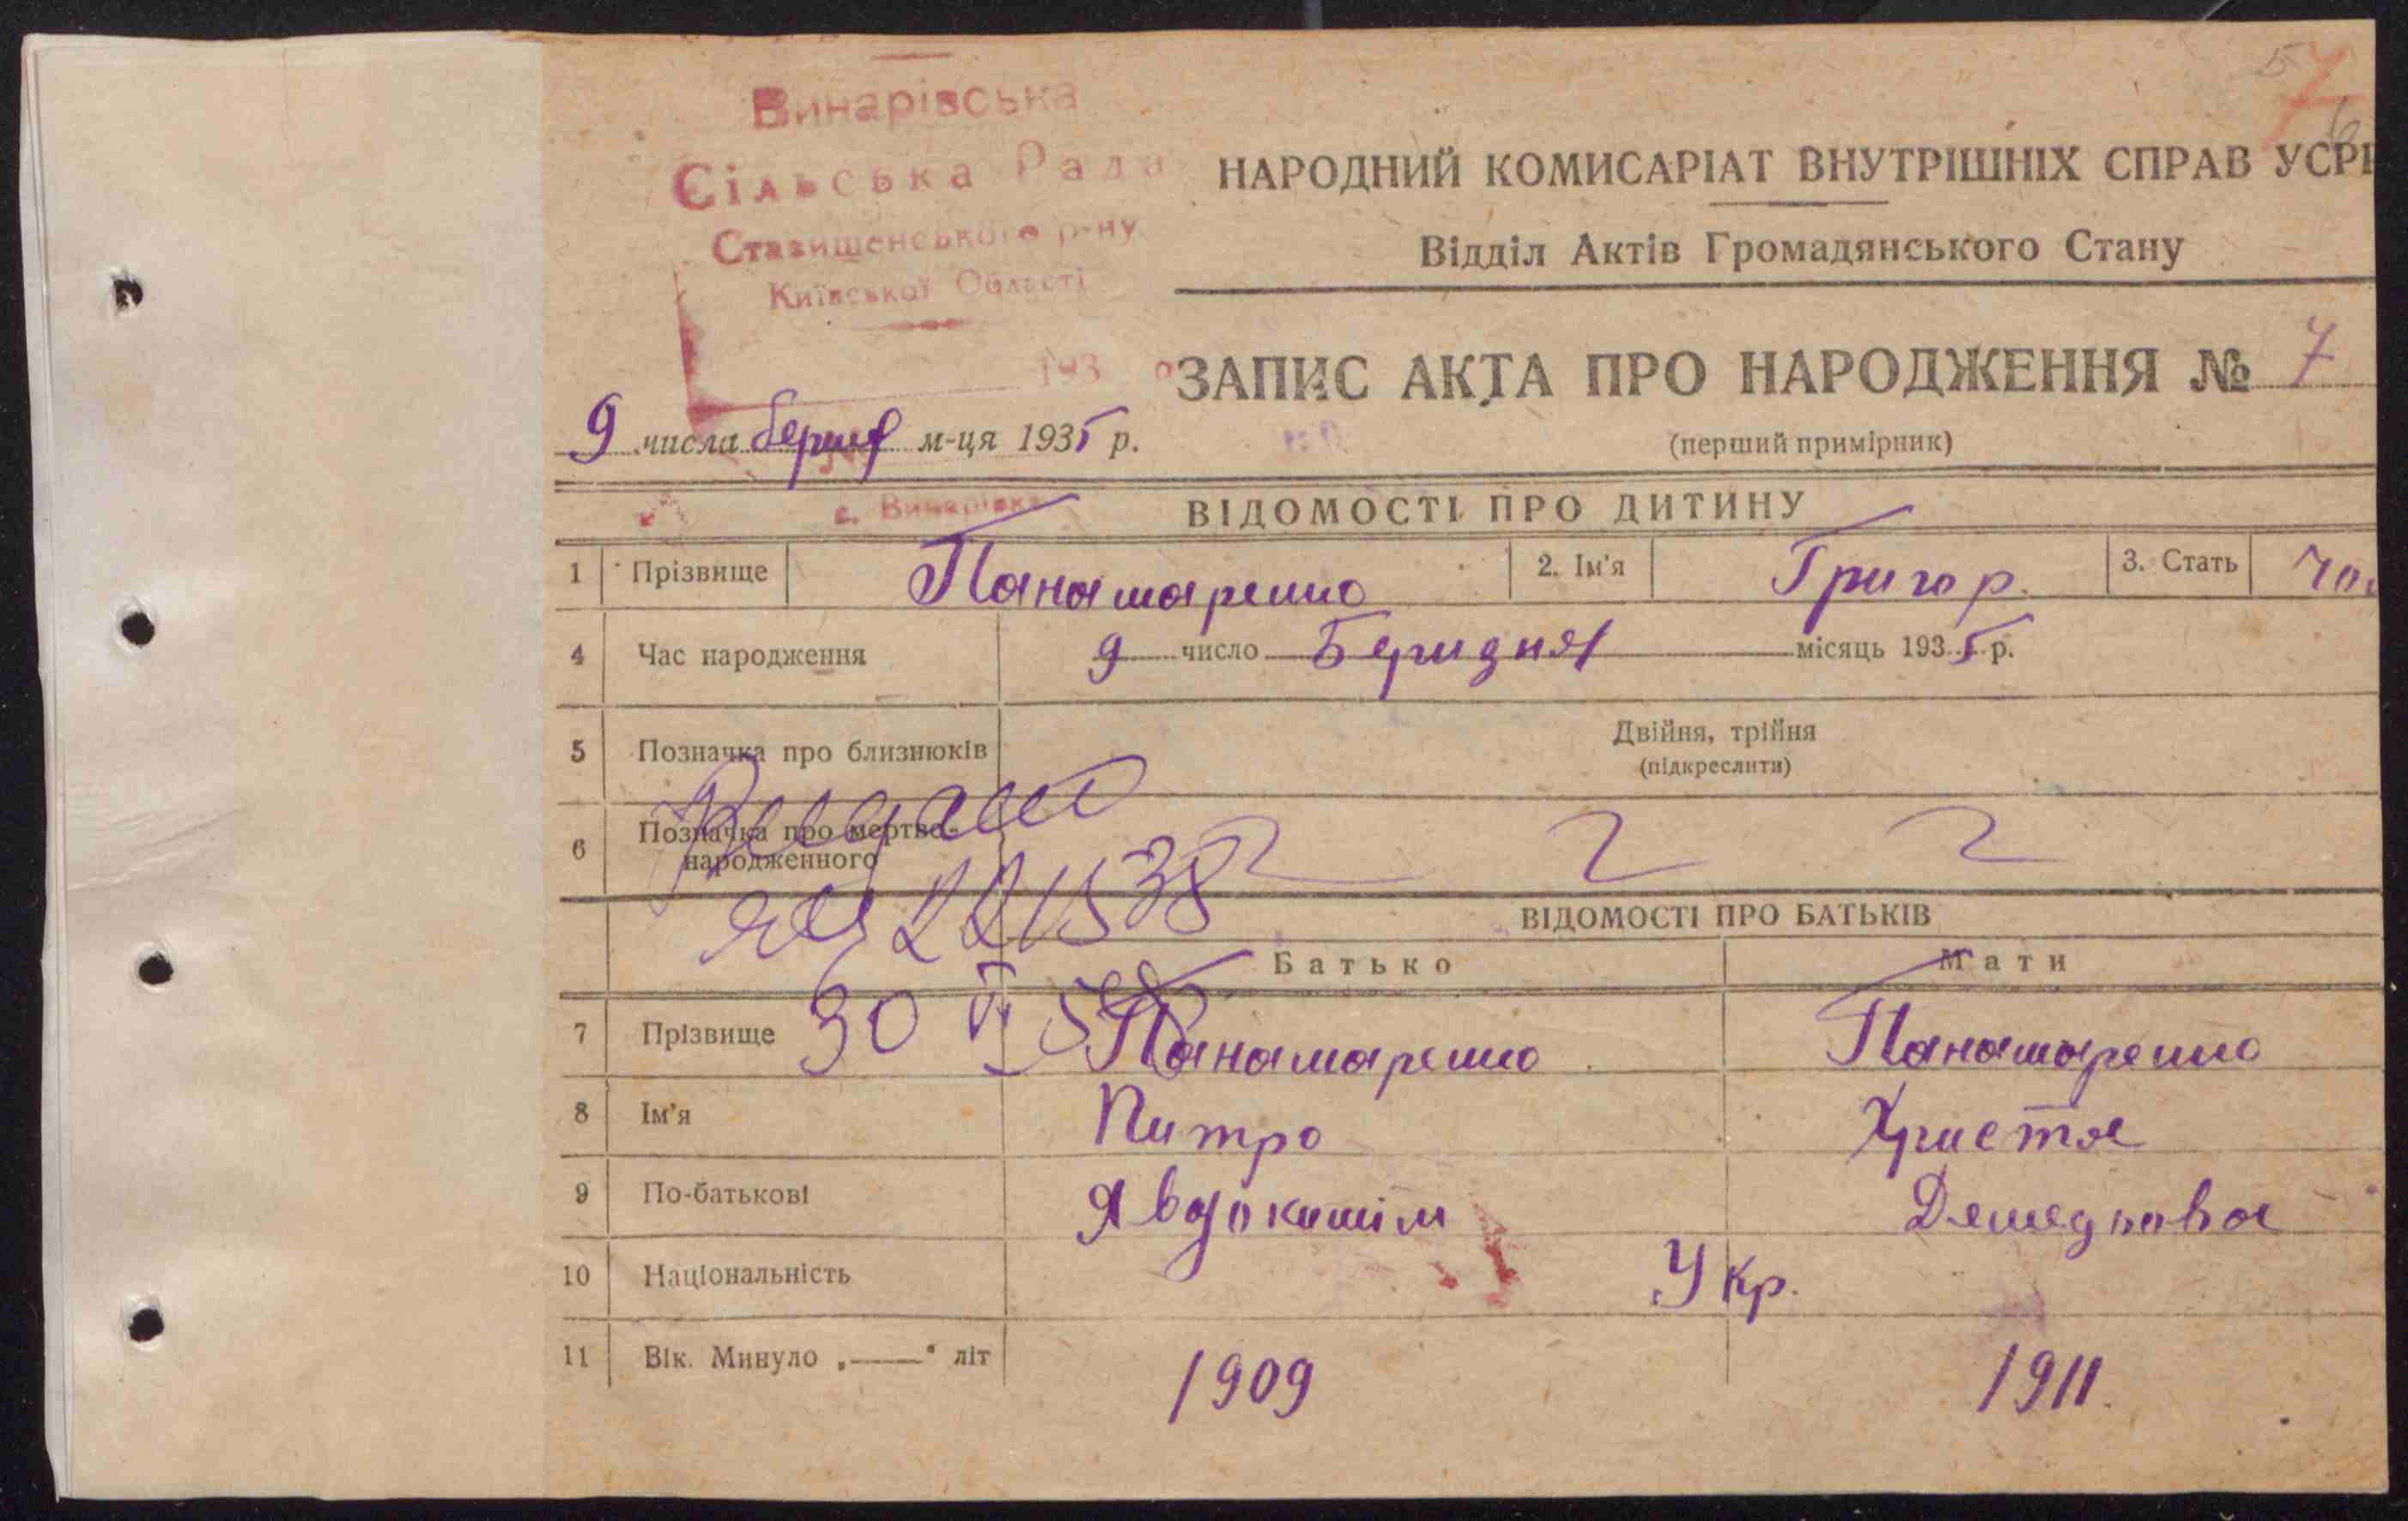 Винарівська
Сільська Рада
Ставищенського р-ну
Київської Області
193
с. Винарівка
НАРОДНИЙ КОМИСАРІАТ ВНУТРІШНІХ СПРАВ УСР
Відділ Актів Громадянського Стану
ЗАПИС АКТА ПРО НАРОДЖЕННЯ № 7
9 числа м-ця 1935 р.
(перший примірник)
ВІДОМОСТІ ПРО ДИТИНУ
1 Прізвище Панамаренко 2. Ім'я Григор. 3. Стать чол
4 Час народження 9 число Беридня місяць 1935 р.
5 Позначка про близнюків Двійня, трійня
(підкреслити)
6 Позначка про мертво-
народженного
22 38
ВІДОМОСТІ ПРО БАТЬКІВ
Батько Мати
30 VI
7 Прізвище Панамаренко Панамаренко
8 Ім'я Питро Христя
9 По-батькові Явдокимім Демедовва
10 Національність Укр.
11 Вік. Минуло „——“ літ 1909 1911.